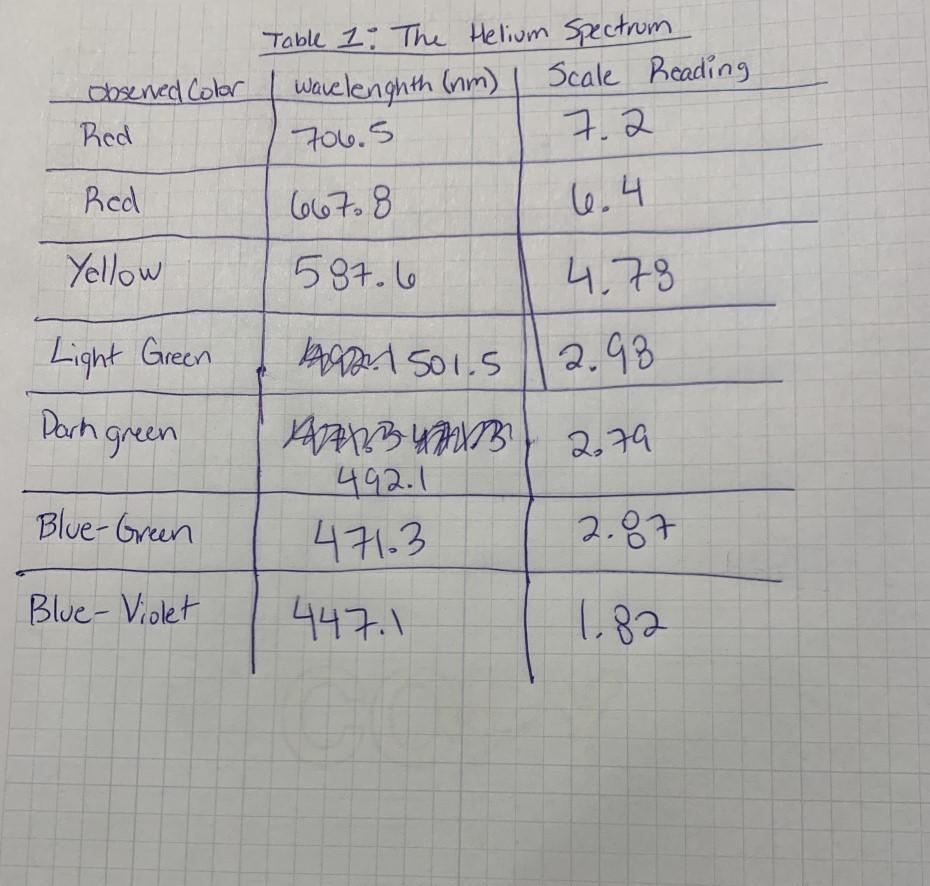 Table 1: The Helium Spectrum
Observed Color wavelenghth (nm) Scale Reading
Red 706.5 7.2
Red 667.8 6.4
Yellow 587.6 4.78
Light Green 501.5 2.98
Dark green 2.79
492.1
Blue-Green 471.3 2.87
Blue-Violet 447.1 1.82